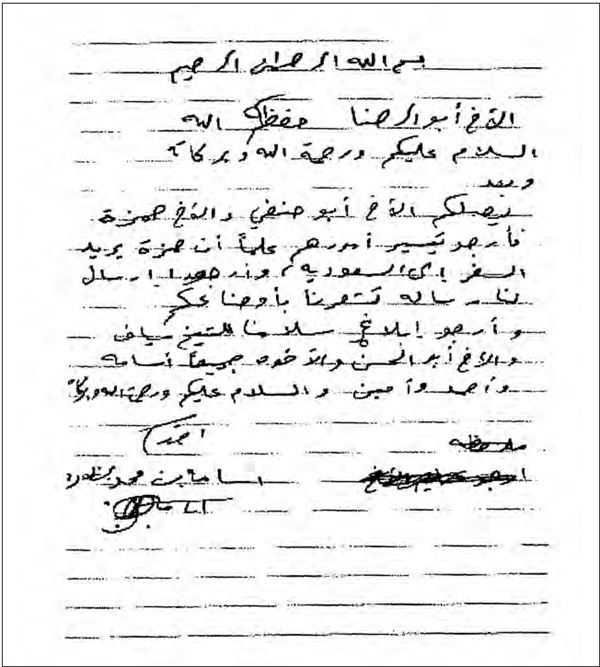 بسم الله الرحمن الرحيم
الأخ أبو الرضا حفظكم الله
السلام عليكم ورحمة الله وبركاته
وبعد
يصلكم الأخ أبو حنفي والأخ حمزة
فأرجو تيسير أمورهم علماً أن حمزة يريد
السفر إلى السعودية، وأرجو إرسال
لنا رسالة تشعرنا بأوضاعكم
وأرجو إبلاغ سلامنا للشيخ سياف
والأخ أبو الحسن والأخوه جميعاً أسامه
وأحمد وأمين والسلام عليكم ورحمة الله وبركاته
ملاحظه
اسامة بن محمد